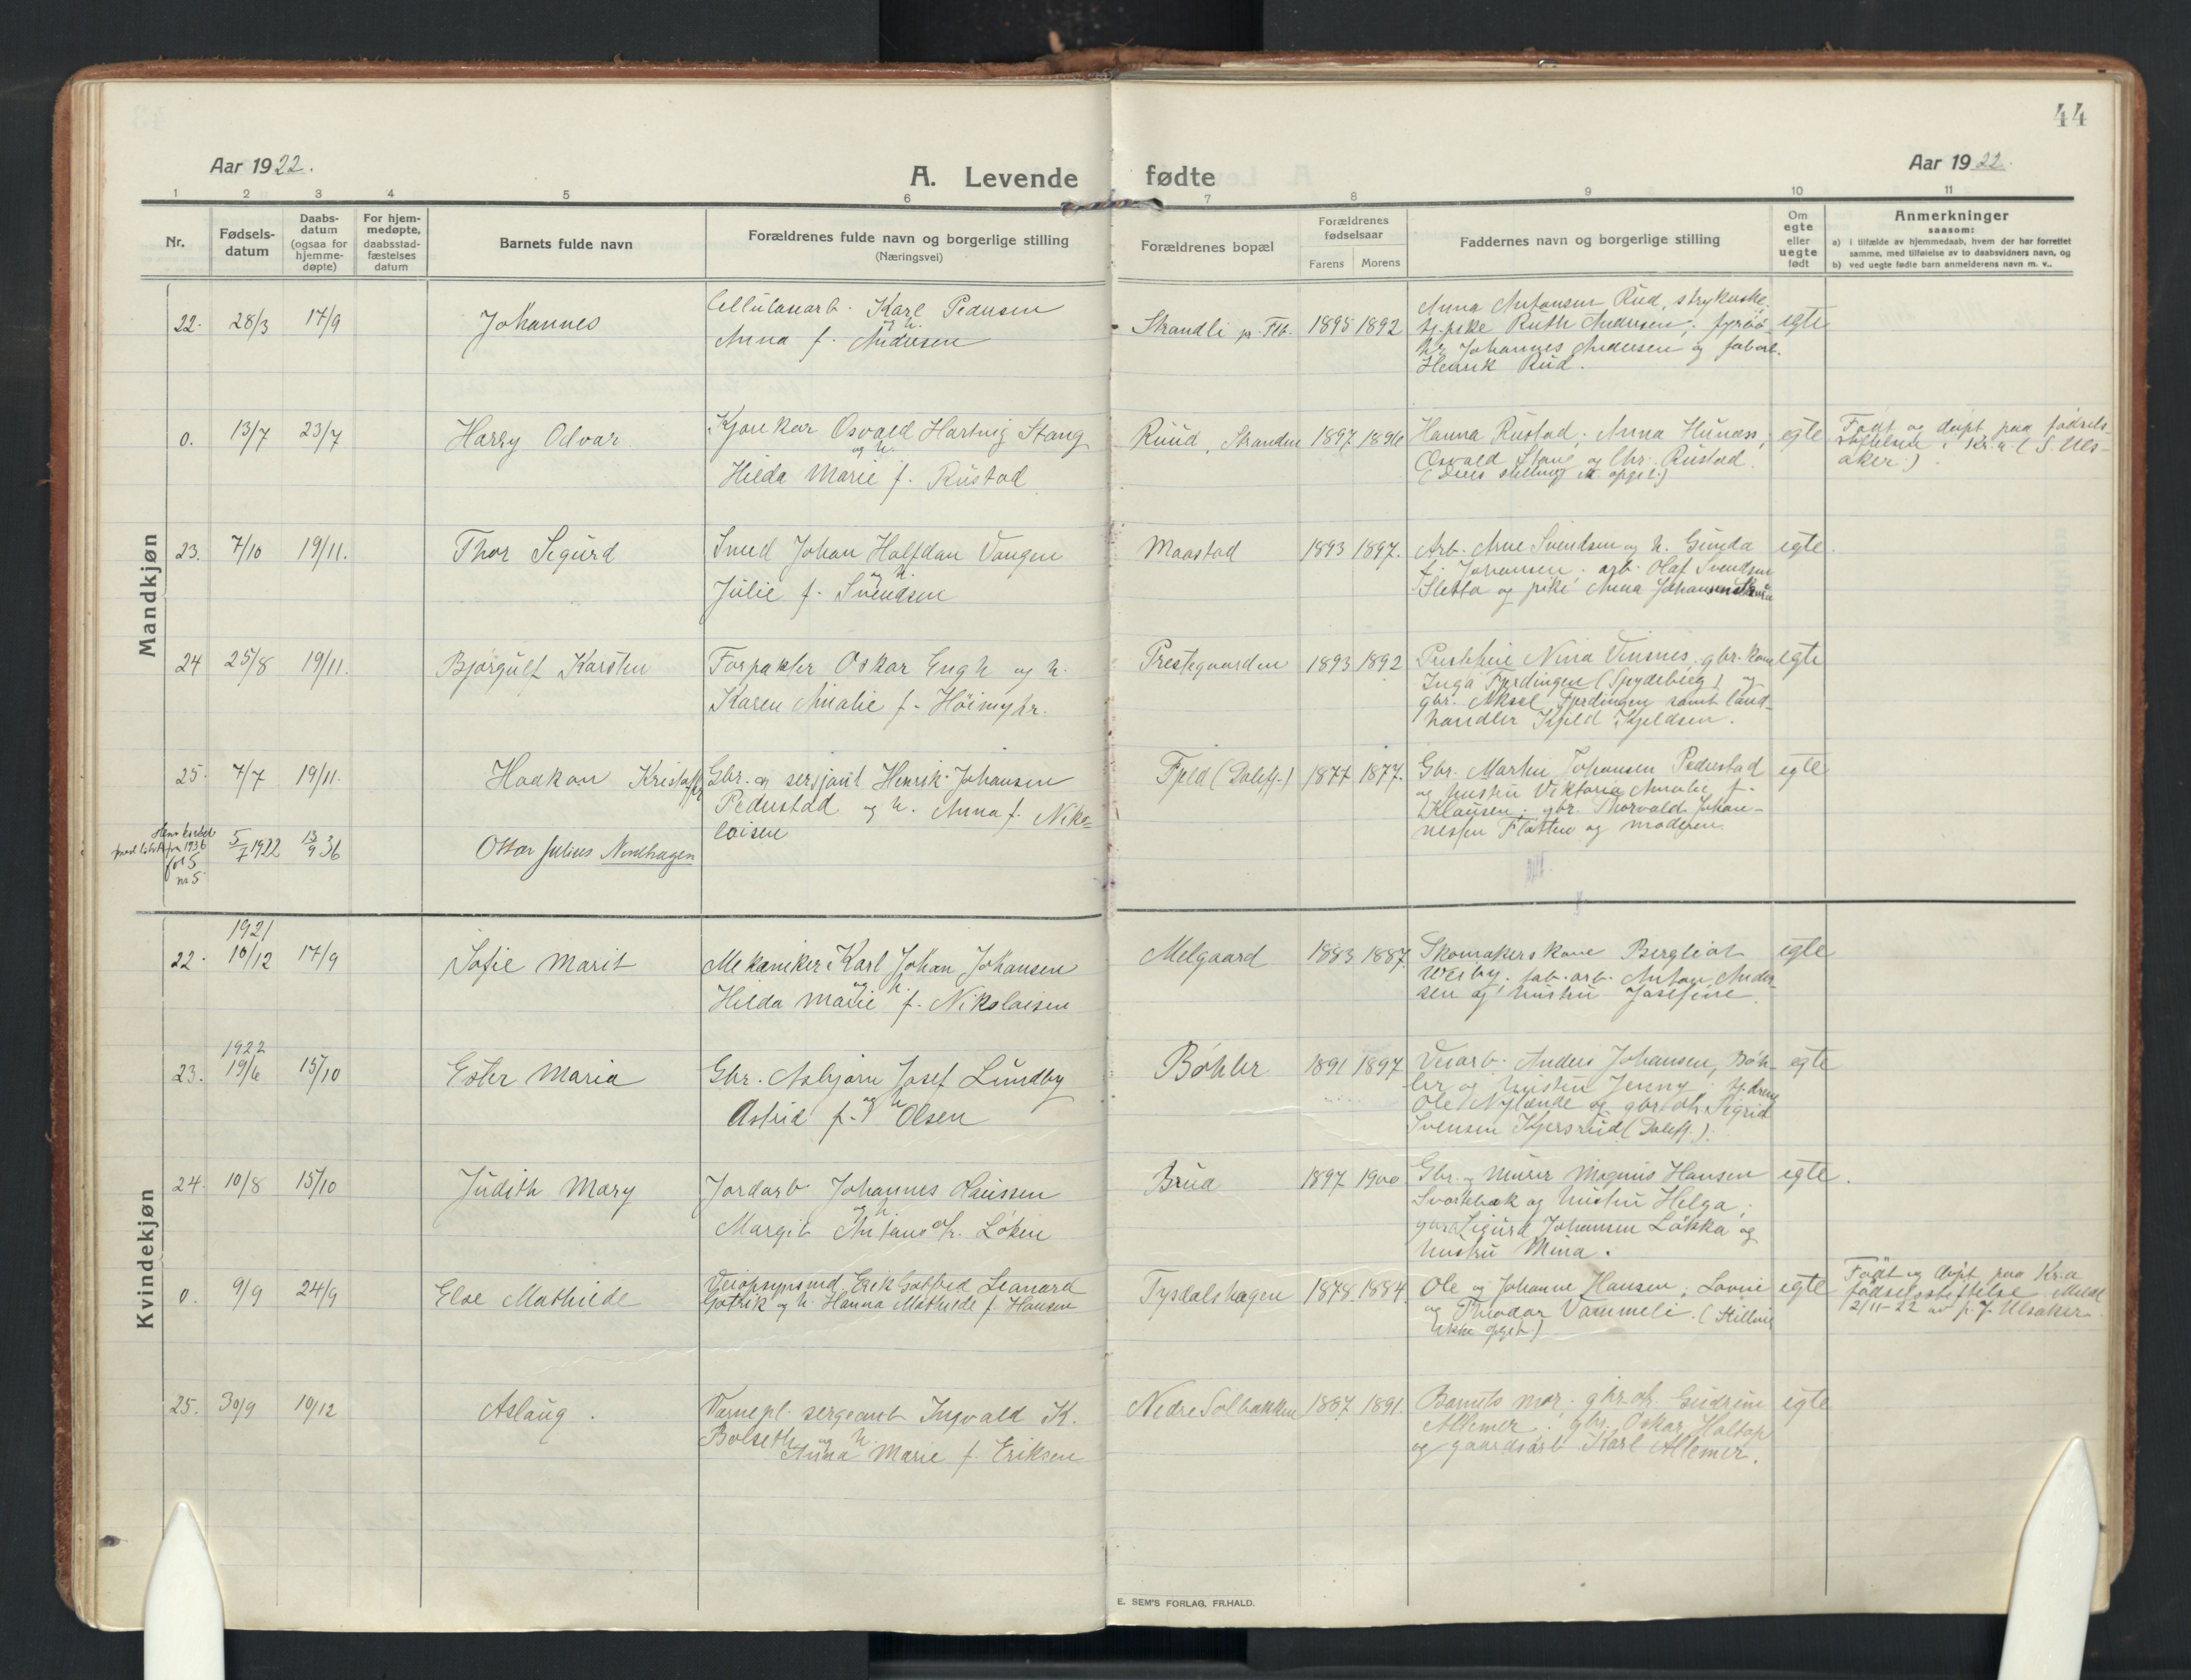 44
Aar 1922.
A. Levende fødte
Aar 1922.
1 2 3 4 5 6 7 8 9 10 11
Nr.
Fødsels-
datum
Daabs-
datum
(ogsaa for
hjemme-
døpte)
For hjem-
medøpte,
daabsstad-
fæstelses
datum
Barnets fulde navn
Forældrenes fulde navn og borgerlige stilling
(Næringsvei)
Forældrenes bopæl
Forældrenes
fødselsaar
Farens Morens
Faddernes navn og borgerlige stilling
Om
egte
eller
uegte
født
Anmerkninger
saasom:
a) i tilfælde av hjemmedaab, hvem der har forrettet
samme, med tilføielse av to daabsvidners navn, og
b) ved uegte fødte barn anmelderens navn m. v..
Mandkjøn
22. 28/3 17/9 Johannes
Cellulosearb. Karl Pedersen
og h.
Anna f. Andersen
Strandli pr Flb. 1895 1892
Anna Antonsen Rud, strykerske,
tj.pike Ruth Andersen,
Johannes Andersen og fabarb.
Henrik Rud.
egte
0. 13/7 23/7 Harry Odvar
Kjørekar Osvald Hartvig Stang
og h.
Hilda Marie f. Rustad
Ruud, Stranden 1897 1896
Hanna Rustad, Anna Hunæss,
Osvald Stang og Chr. Rustad.
(Deres stilling ei opgit)
egte
Født og døpt paa fødsels-
stiftelsen i Kr.a (S. Uls-
aker.)
23. 7/10 19/11. Thor Sigurd
Smed Johan Halfdan Vangen
og h.
Julie f. Svendsen
Maastad 1893 1897.
Arb. Arne Svendsen og h. Gunda
f. Johansen. arb. Olaf Svendsen
Sletta og pike Anna Johansen
egte
24 25/8 19/11. Bjørgulf Karsten
Forpakter Oskar Engh og h.
Karen Amalie f. Höimyhr.
Prestegaarden 1893 1892
Prestefrue Nina Vinsnes, gbr. kone
Inga Fjerdingen (Spydeberg) og
gbr. Aksel Fjerdingen samt land-
handler Kjeld Kjeldsen.
egte
25. 7/7 19/11. Haakon Kristoffer
Gbr. og sersjant Henrik Johansen
Pederstad og h. Anna f. Niko-
laisen
Fjeld (Dalefj.) 1877 1877.
Gbr. Martin Johansen Pederstad
og hustru Viktoria Amalie f.
Klausen, gbr. Thorvald Johan-
nessen Flatten og moderen.
egte
1936
fol 5
nr 5
5/7 1922 13/9 36 Ottar Julius Nordhagen
Kvindekjøn
1921
22. 10/12 17/9 Sofie Marit
Mekaniker Karl Johan Johansen
og h.
Hilda Marie f. Nikolaisen
Melgaard 1883 1887.
Skomakerskone Bergliot
Weiby, fab. arb. Anton Ander-
sen og hustru Josefine
egte
1922
23. 19/6 15/10 Ester Maria
Gbr. Asbjørn Josef Lundby
og h
Astrid f. Olsen
Bøhler 1891 1897
Veiarb. Anders Johansen, Bøh-
ler og hustru Jenny; tj.dreng
Ole Nylænde og gbr. dtr. Sigrid
Svensen Kjersrud (Dalefj.).
egte
24. 10/8 15/10 Judith Mary
Jordarb Johannes Claussen
og h
Margit Antans dtr. Löken
Brua 1897 1900
Gbr. og murer Magnus Hansen
Svartebæk og hustru Helga;
gbr. Sigurd Johansen Løkka og
hustru Mina.
egte.
0. 9/9 24/9 Else Mathilde
Veiopsynsmd. Erik Gotfred Leonard
Gotrik og h. Hanna Mathilde f Hansen
Tysdalshagen 1878. 1884.
Ole og Johanne Hansen, Lovise
og Theodor Vammeli. (Stilling
ikke opgit)
egte
Født og døpt paa Kr.a
fødselsstiftelse. Meldt
2/11-22 av p. J. Ulsaker
25. 30/9 10/12 Aslaug.
Vernepl. sergeant Ingvald K.
Bolseth og h.
Anna Marie f. Eriksen
Nedre Solbakken 1887 1891.
Barnets mor, gbr. dt. Gudrun
Allemer, gbr. Oskar Haltop
og gaardsarb Karl Allemer.
egte
E. SEM'S FORLAG, FR.HALD.